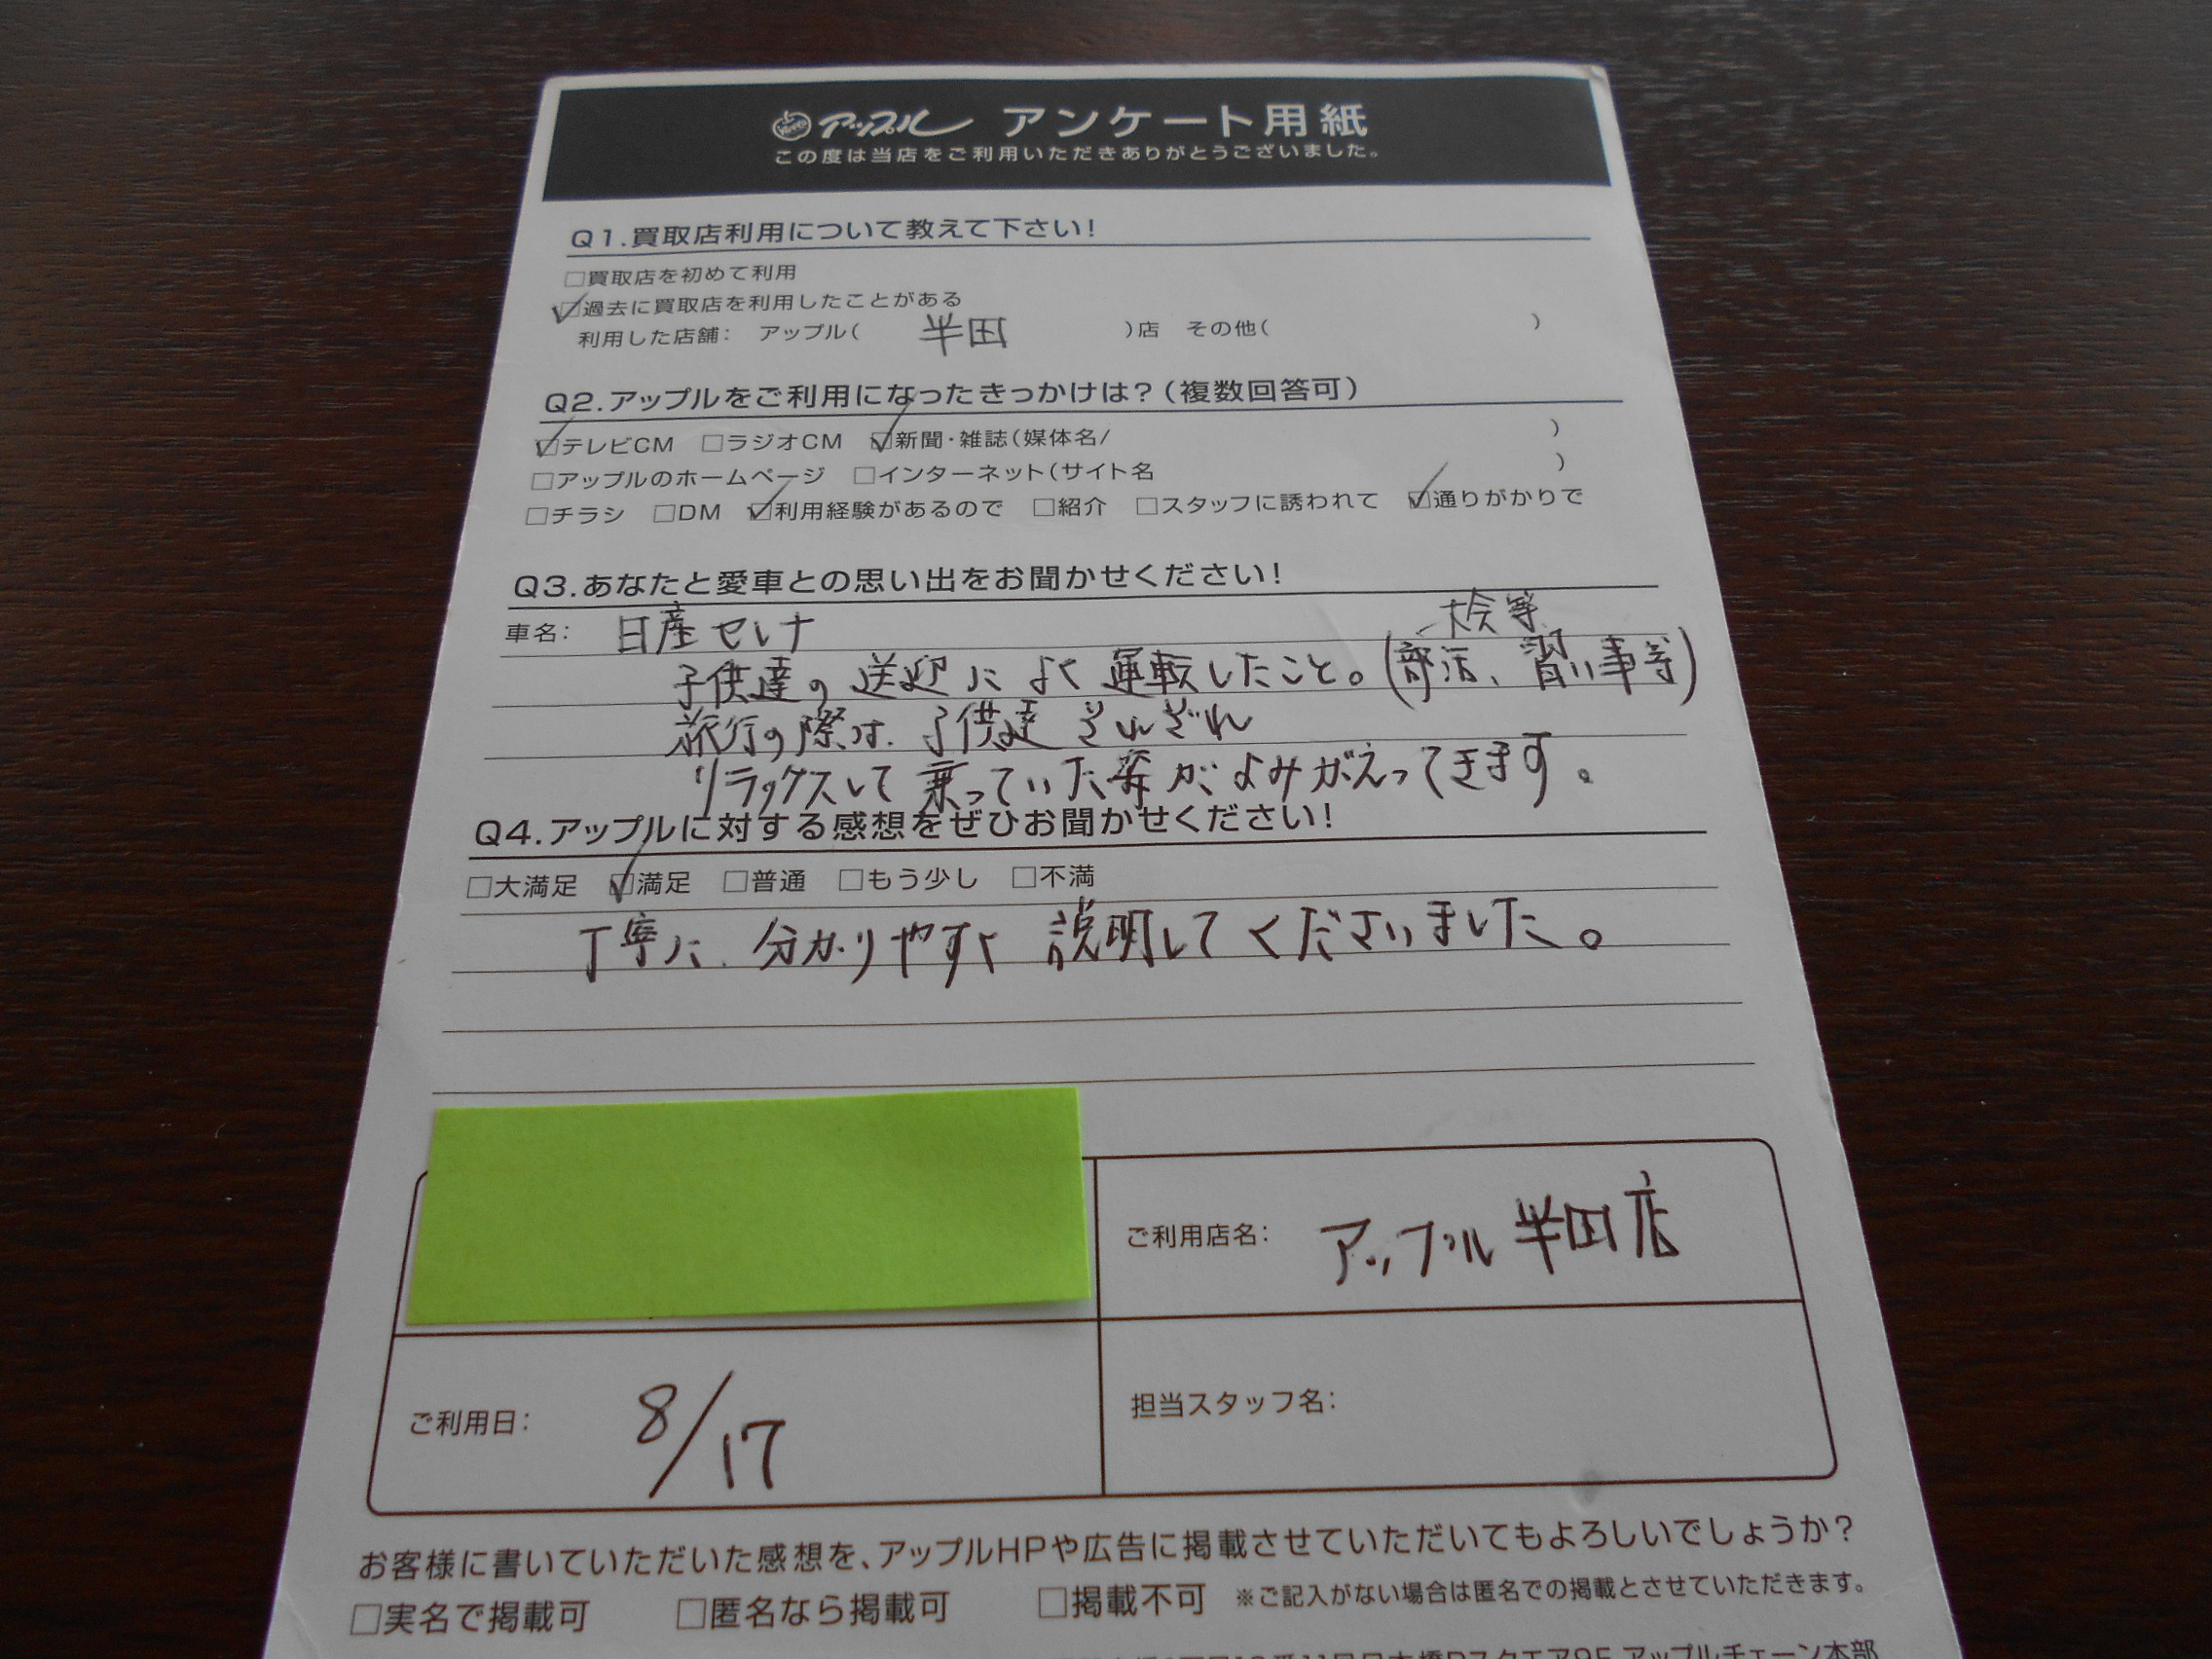 アップル アンケート用紙
この度は当店をご利用いただきありがとうございました。
Q1.買取店利用について教えて下さい!
□買取店を初めて利用
☑過去に買取店を利用したことがある
利用した店舗: アップル( 半田 )店 その他( )
Q2.アップルをご利用になったきっかけは?(複数回答可)
☑テレビCM □ラジオCM ☑新聞・雑誌(媒体名/ )
□アップルのホームページ □インターネット(サイト名 )
□チラシ □DM ☑利用経験があるので □紹介 □スタッフに誘われて ☑通りがかりで
Q3.あなたと愛車との思い出をお聞かせください!
車名: 日産セレナ
大会等
子供達の送迎によく運転したこと。(部活、習い事等)
旅行の際は、子供達それぞれ
リラックスして乗っていた姿がよみがえってきます。
Q4.アップルに対する感想をぜひお聞かせください!
□大満足 ☑満足 □普通 □もう少し □不満
丁寧に、分かりやすく説明してくださいました。
ご利用店名: アップル半田店
ご利用日: 8/17
担当スタッフ名:
お客様に書いていただいた感想を、アップルHPや広告に掲載させていただいてもよろしいでしょうか?
□実名で掲載可 □匿名なら掲載可 □掲載不可 ※ご記入がない場合は匿名での掲載とさせていただきます。
アップルチェーン本部